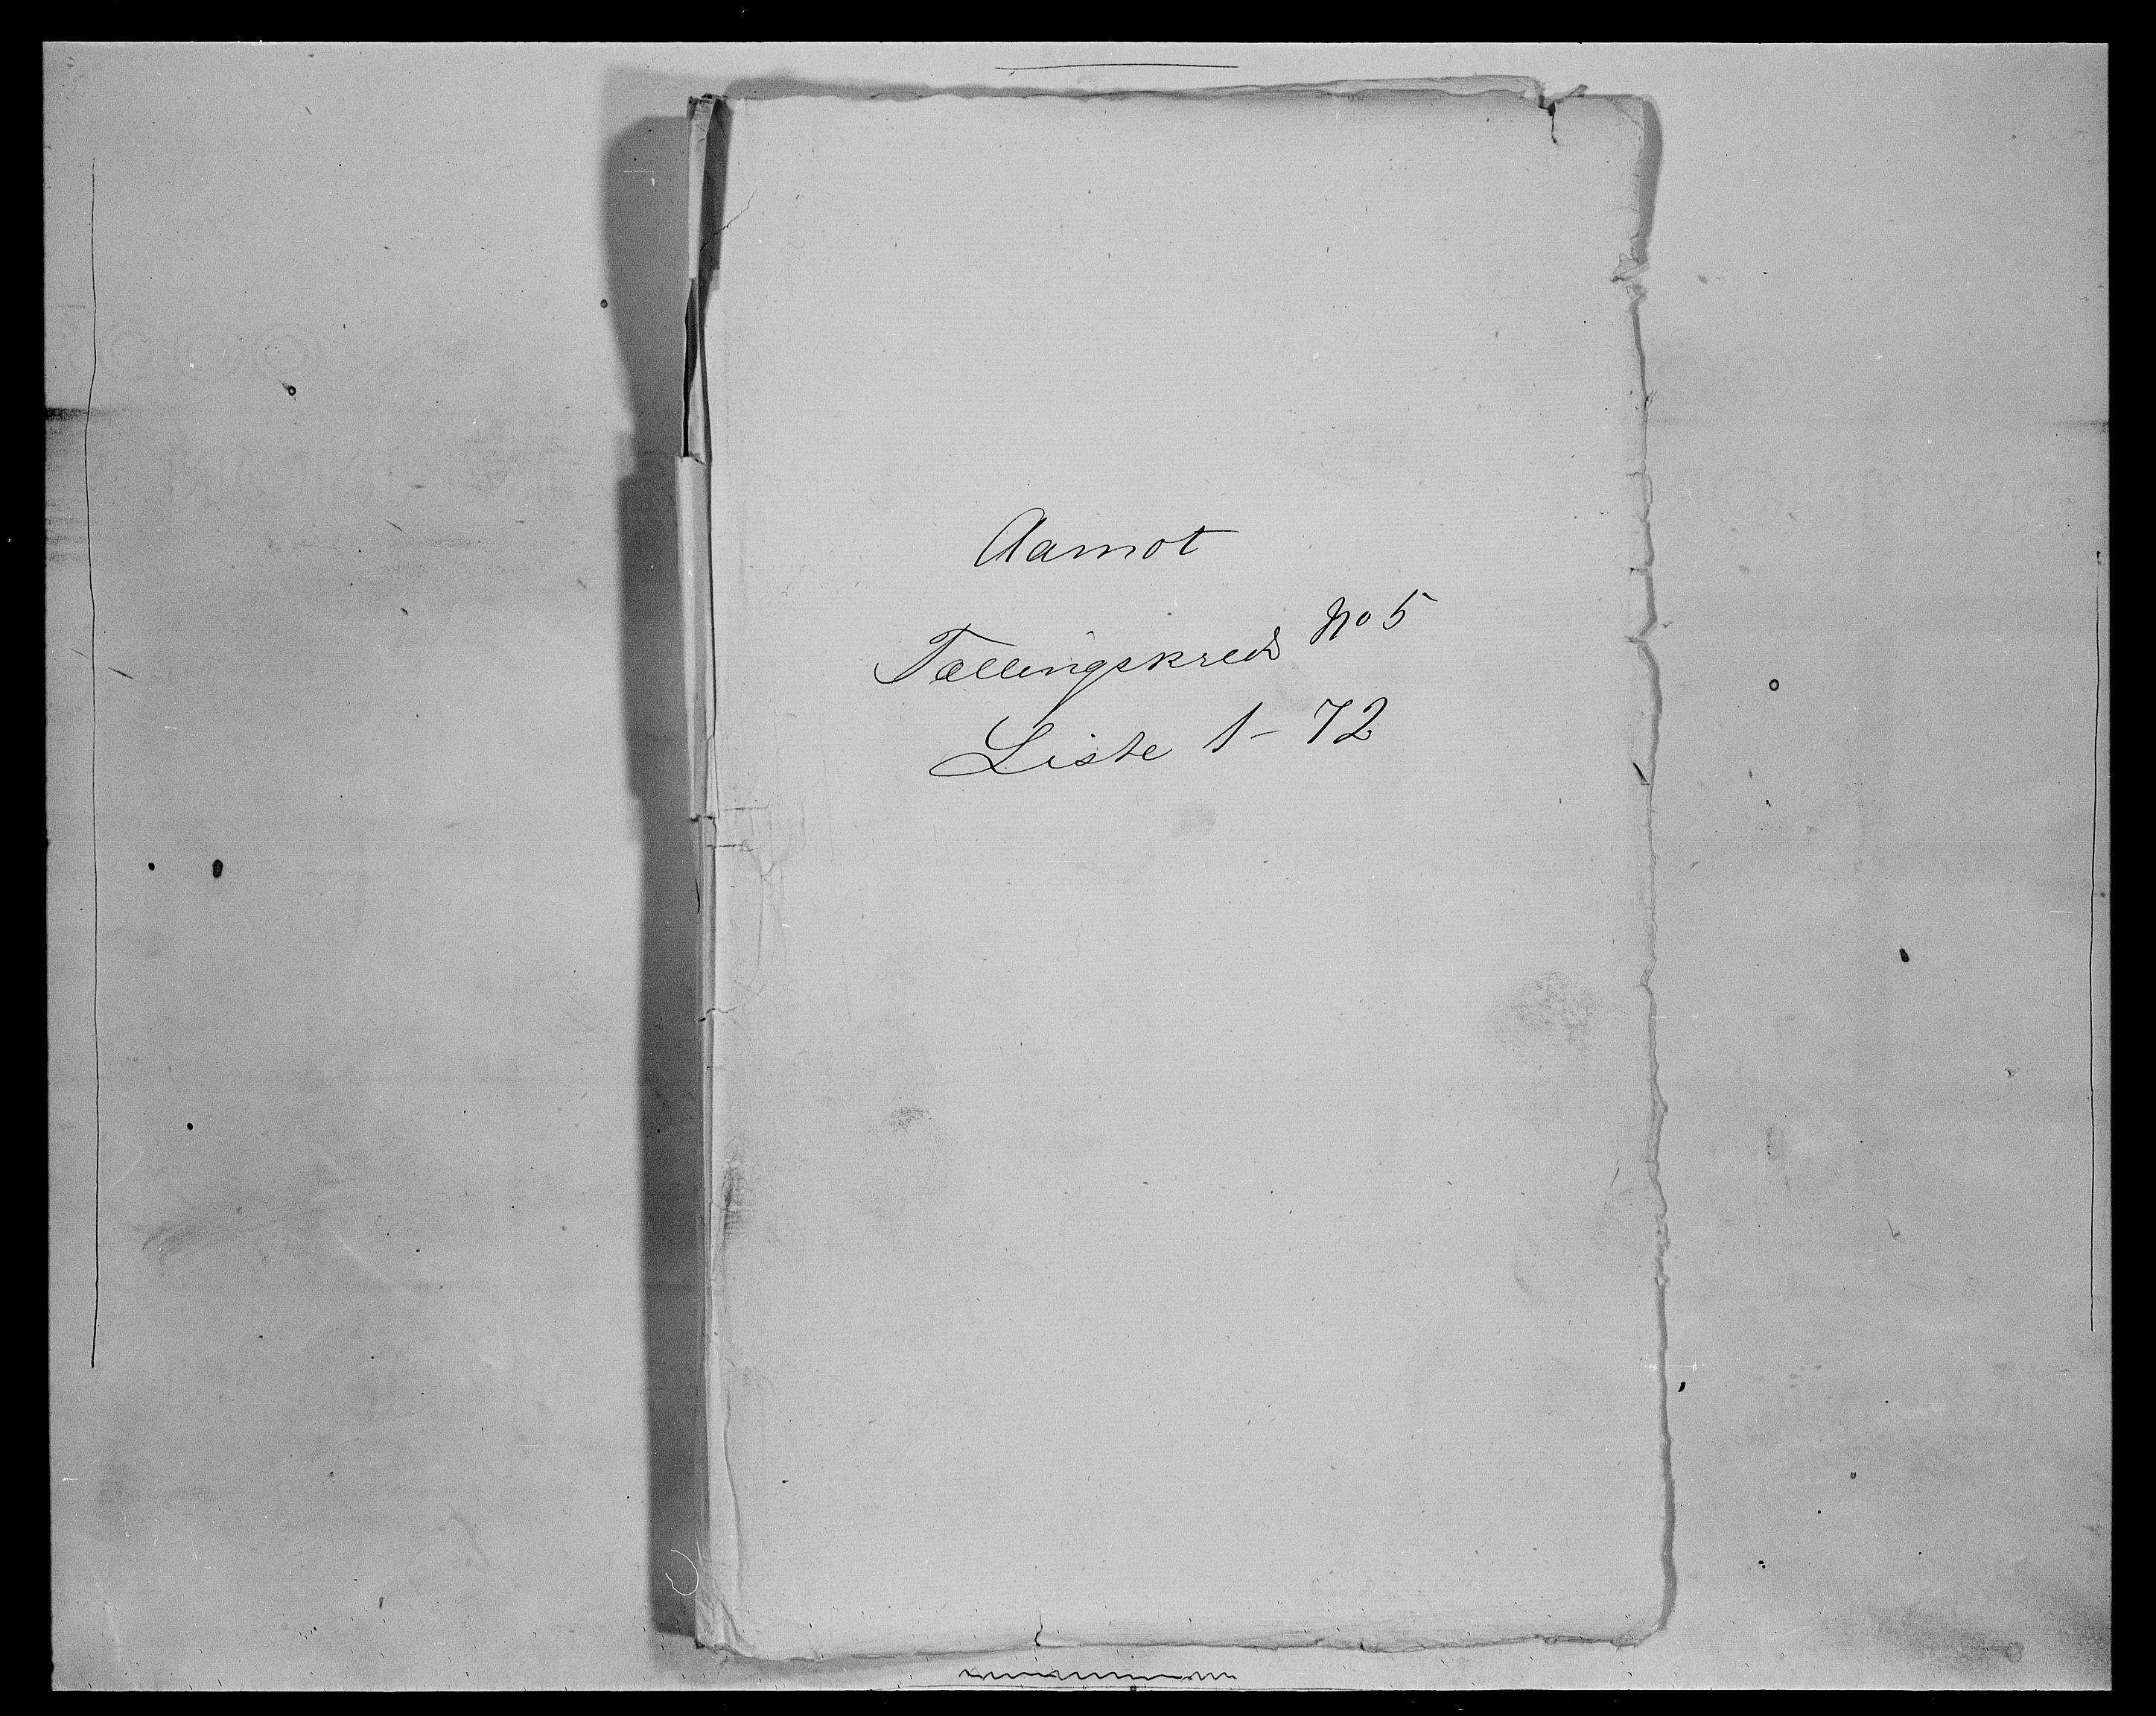 Aamot
Tællingskreds No 5
Liste 1-72